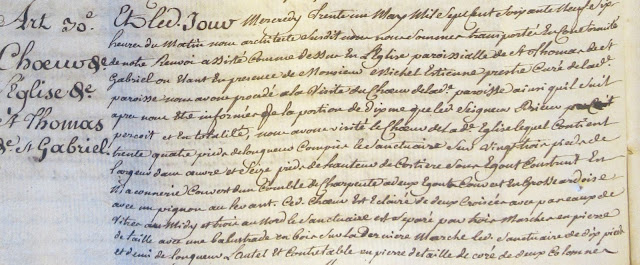 Art 30e.
Chœur de
L'Eglise de
St Thomas
de St Gabriel
Et led. Jour Mercredy trente un May Mil Sept cent soixante Neuf Six
heures du Matin nous architecte Susdit nous sommes transporté en
notre Renvoi assisté comme dessus en L'Eglise paroissialle de St Thomas de St
Gabriel ou Etant en presence de Monsieur Michel Etienne prestre Curé de lad.
paroisse nous avons procedé a la Visite du Chœur de lad. paroisse ainsi quil Suit
apres nous être informer de la portion de dixme que led. Seigneur Prieur
percoit et en totalité, nous avons visité le Chœur de lad. Eglise lequel Contient
trente quatre pieds de longueur Compris le Sanctuaire Sur Vingt trois pieds de
largeur dans œuvre et Seize pieds de hauteur de Costiere sous Egout Construit En
Maconnerie Couvert d'un Comble de Charpente a deux Egouts Couvert En Grosse ardoise
avec un pignon au levant. Led. Chœur est Eclairé de deux Croisées avec panneaux de
Vitres au Midy et trois au Nord le Sanctuaire est Separé par trois Marches en pierre
de taille avec une balustrade en bois Sur la Derniere Marche led. Santuaire de dix pieds
et demi de longueur L'autel et Contretable en pierre de taille decoré de deux Colonnes